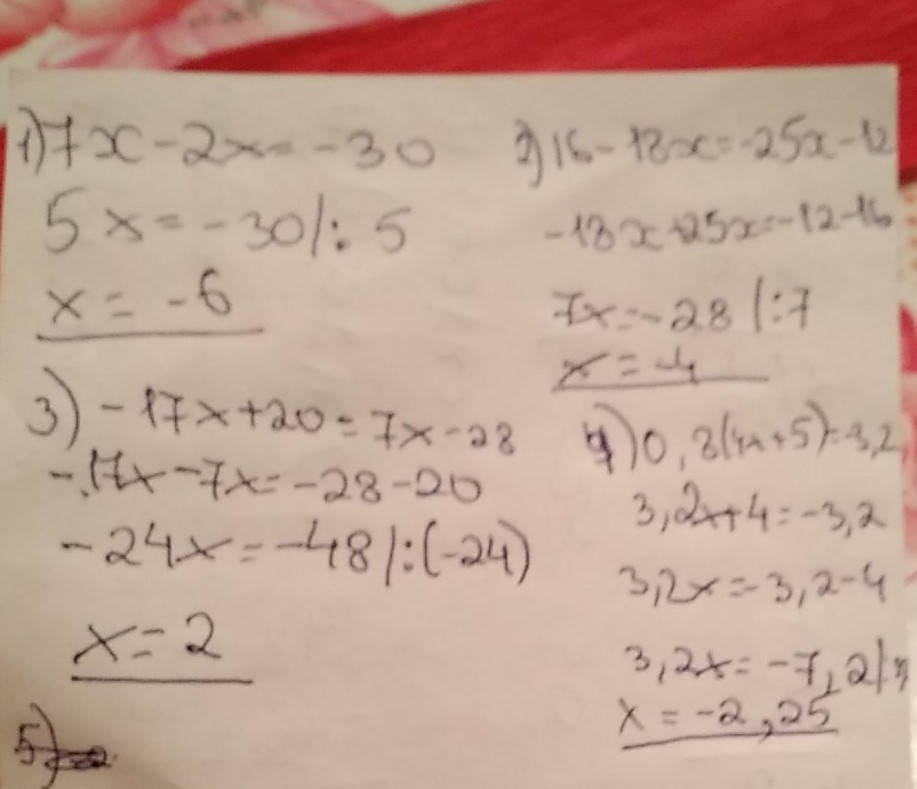 1) 7x - 2x = -30
5x = -30 /: 5
x = -6
2) 16 - 18x = -25x - 12
-18x + 25x = -12 - 16
7x = -28 /: 7
x = -4
3) -17x + 20 = 7x - 28
-17x - 7x = -28 - 20
-24x = -48 /: (-24)
x = 2
4) 0,8(4x + 5) = -3,2
3,2x + 4 = -3,2
3,2x = -3,2 - 4
3,2x = -7,2 /:
x = -2,25
5)